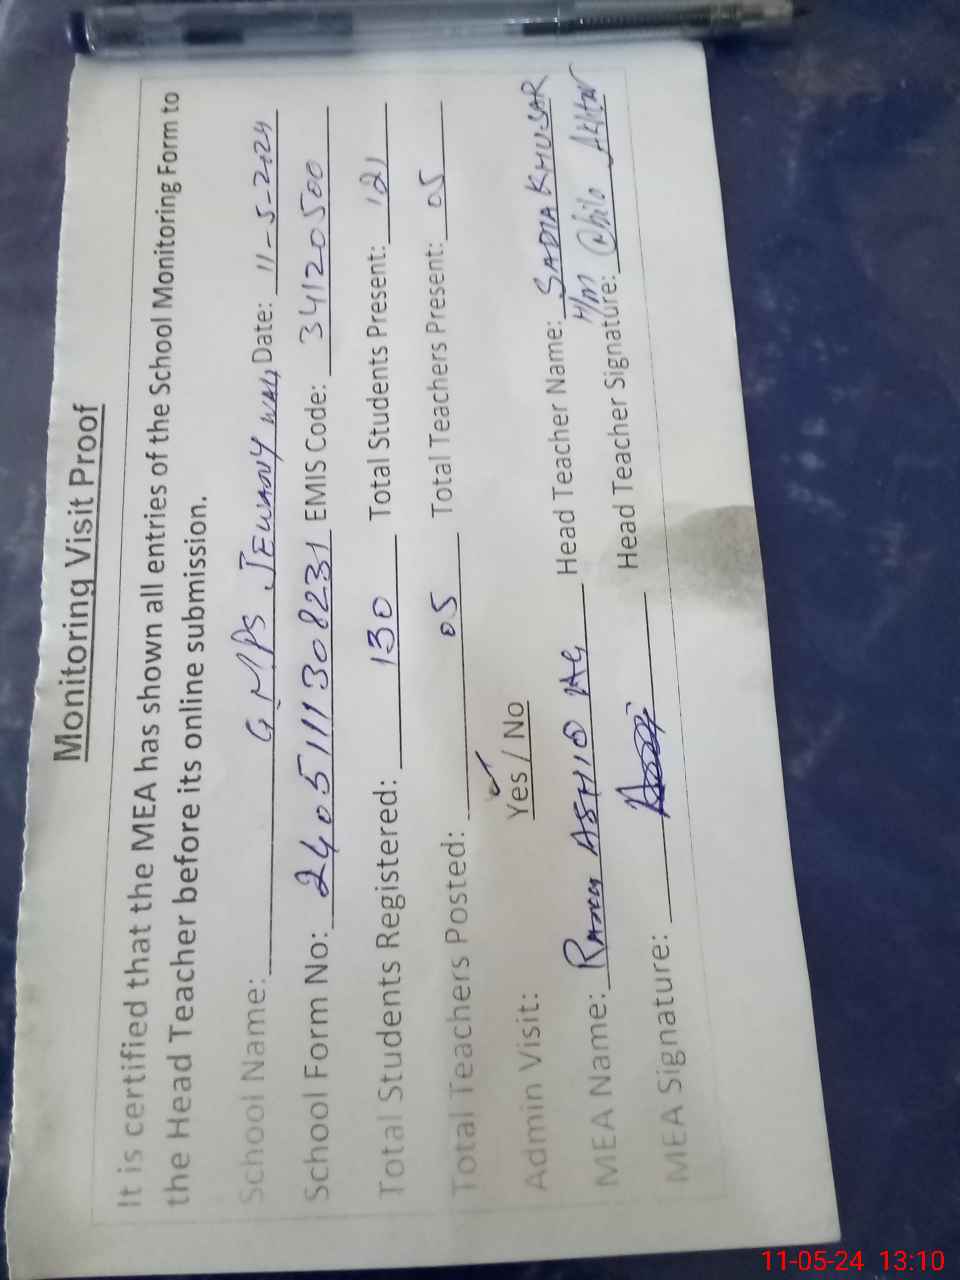 Monitoring Visit Proof
It is certified that the MEA has shown all entries of the School Monitoring Form to
the Head Teacher before its online submission.
School Name: G MPS JEWANY WALI Date: 11-5-2024
School Form No: 2405111308231 EMIS Code: 34120500
Total Students Registered: 130 Total Students Present: 121
Total Teachers Posted: 05 Total Teachers Present: 05
Admin Visit: Yes / No
MEA Name: Head Teacher Name: SADIA KHUSAR
H/M
MEA Signature: Head Teacher Signature: Akhtar
11-05-24 13:10